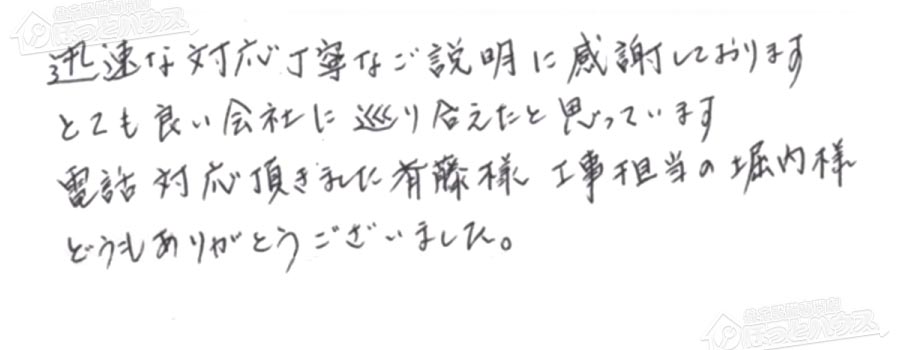 迅速な対応丁寧なご説明に感謝しております
とても良い会社に巡り合えたと思っています
電話対応頂きました斉藤様 工事担当の堀内様
どうもありがとうございました。
ほっとハウス
ほっとハウス